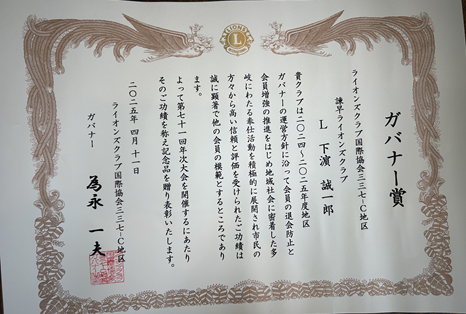 ガバナー賞
ライオンズクラブ国際協会三三七-C地区
諫早ライオンズクラブ
L 下濵 誠一郎
貴クラブは二〇二四〜二〇二五年度地区
ガバナーの運営方針に沿って会員の退会防止と
会員増強の推進をはじめ地域社会に密着した多
岐にわたる奉仕活動を積極的に展開され市民の
方々から高い信頼と評価を受けられたご功績は
誠に顕著で他の会員の模範とするところであり
ます。
よって第七十一回年次大会を開催するにあたり
そのご功績を称え記念品を贈り表彰いたします。
二〇二五年 四月 十一日
ライオンズクラブ国際協会三三七-C地区
ガバナー 為永 一夫
L